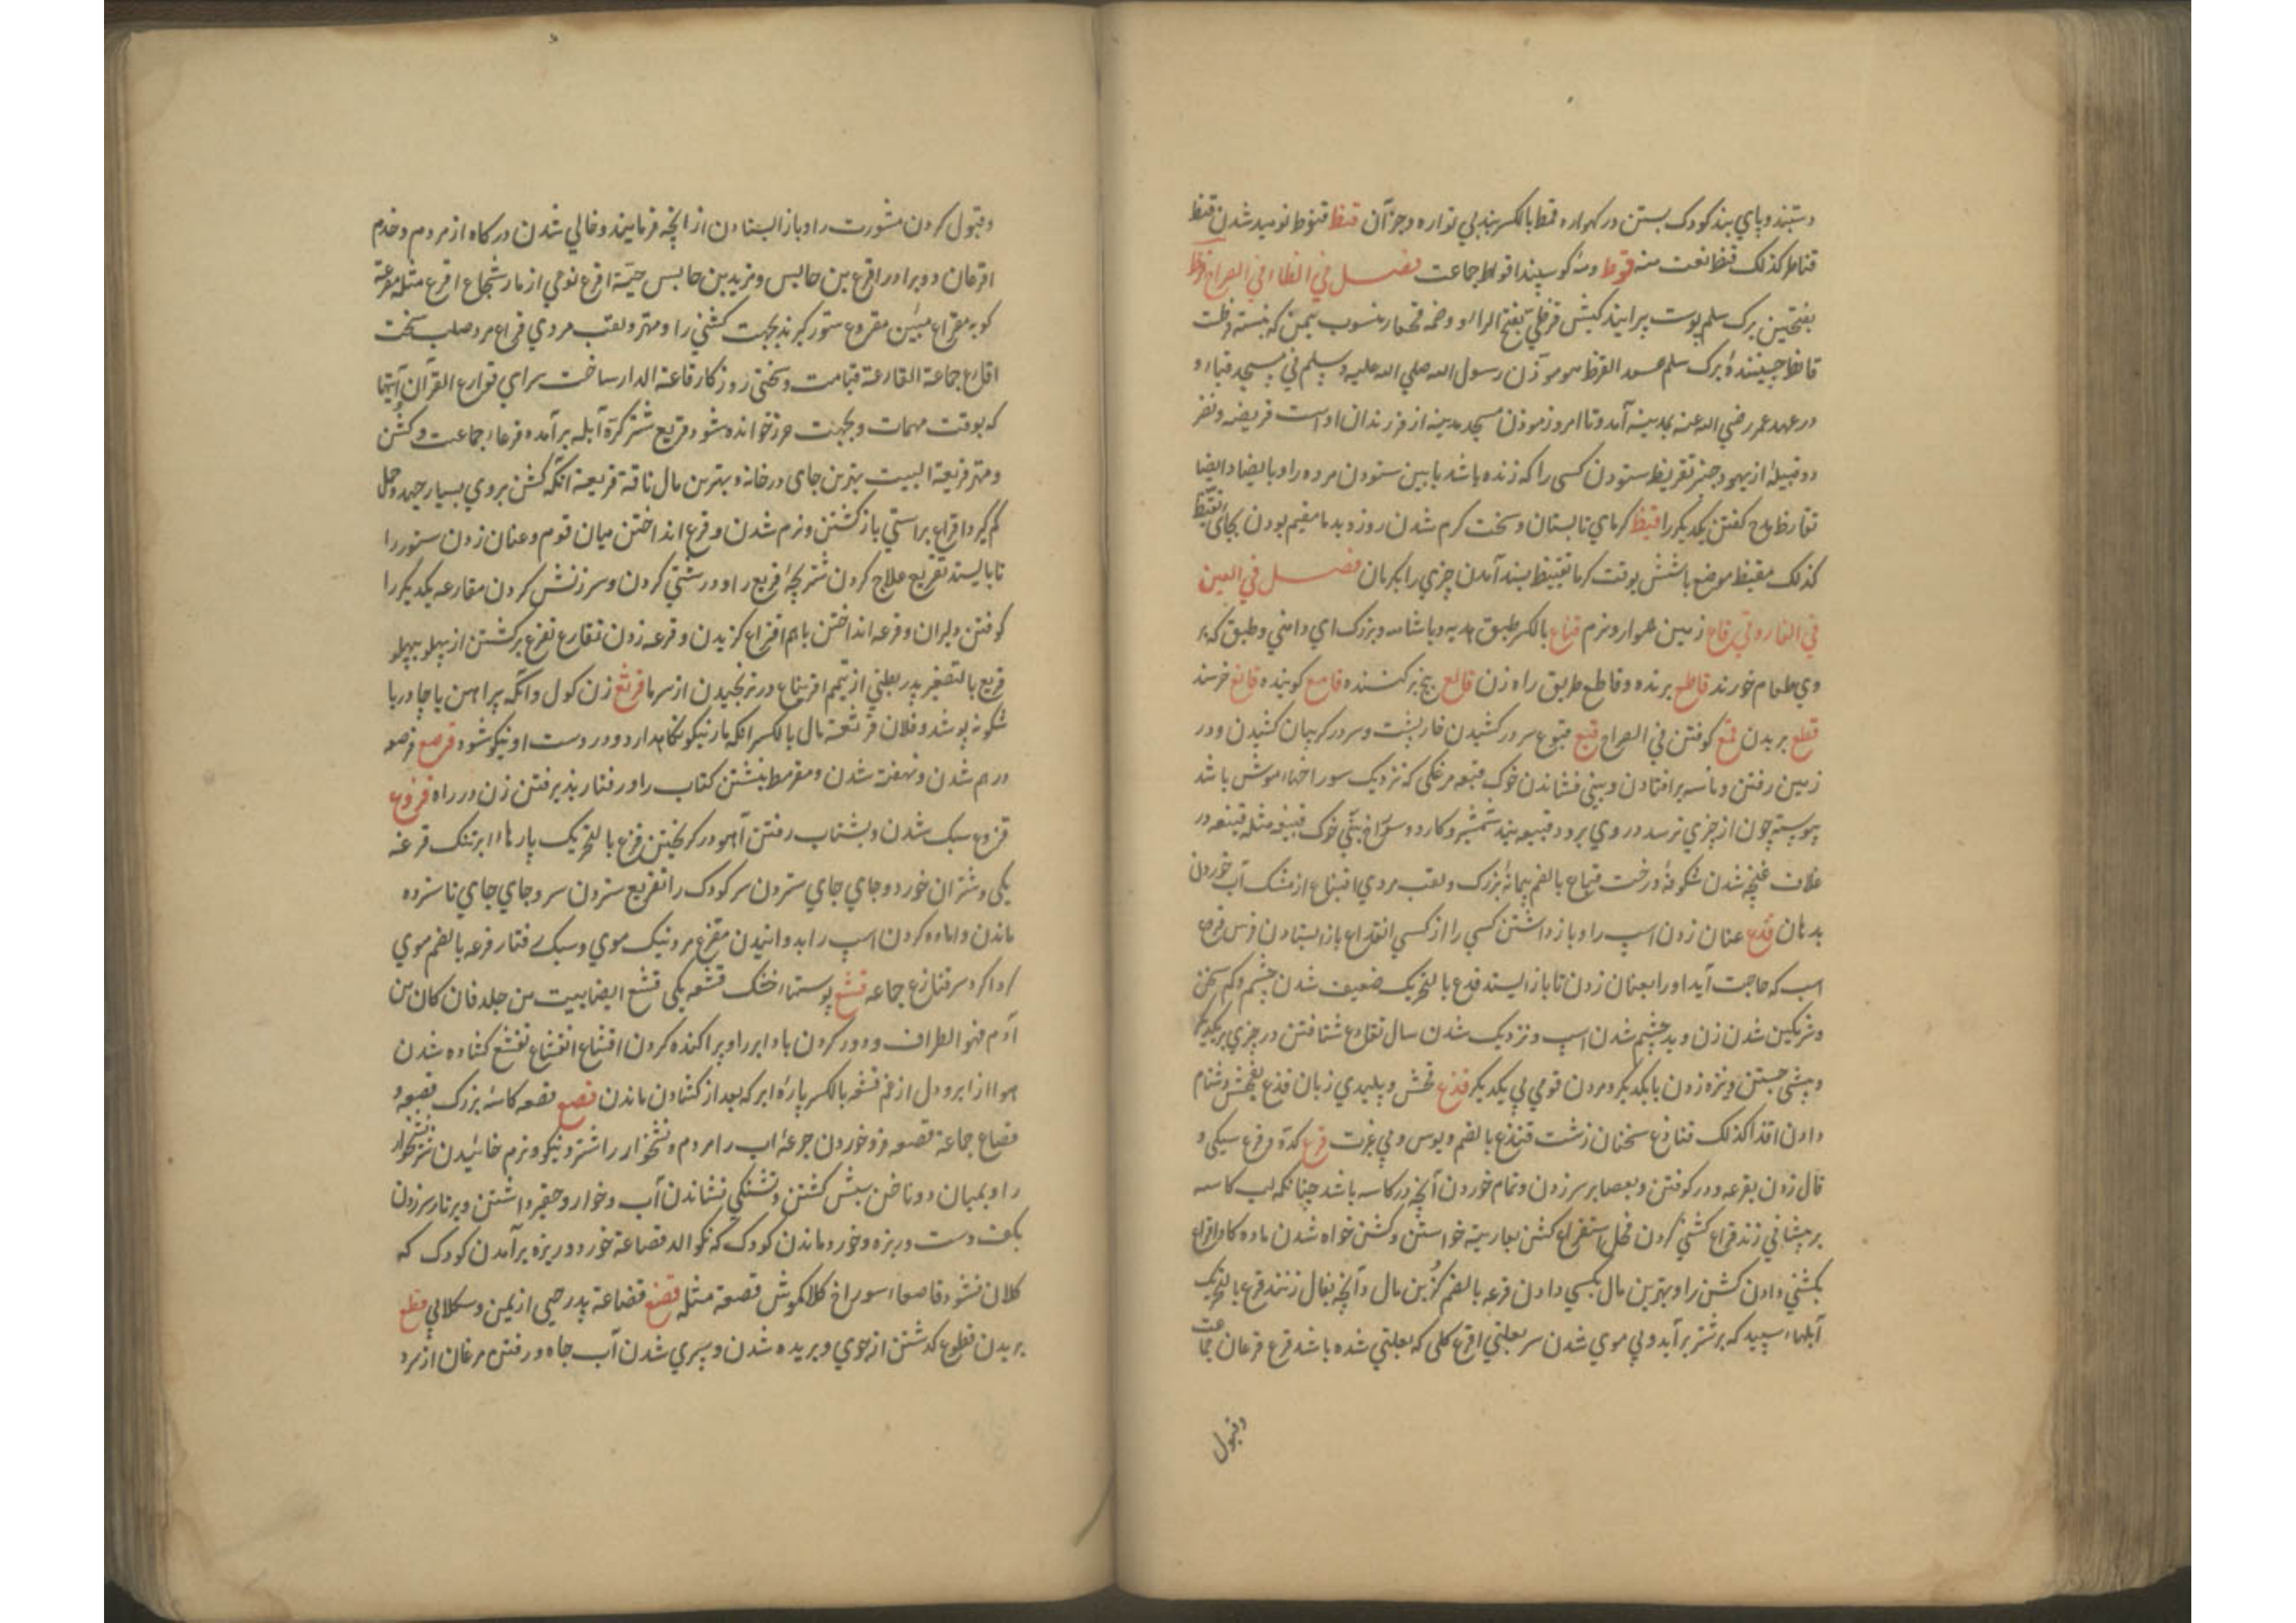 دستبند و پاي بند كودك بستن در كهواره قمط بالكسر بندي نواره و جز آن قنط قنوط نوميد شدن قنط
كذلك قنط نعت منه قوط رمهٔ كوسپند اقواط جماعت فصل في الظاء في الصراح قرظ
بفتحتين برك سلم پوست پيرايند كبش قرظي بفتح الراء و ضمه منسوب بيمن كه بنسته قرظت
قارظ چينندهٔ برك سلم سعد القرظ هو موذن رسول الله صلي الله عليه وسلم في مسجد قباء و
در عهد عمر رضي الله عنه بمدينه آمد و تا امروز موذن مسجد مدينه از فرزندان اوست قريظه و نضر
دو قبيلهٔ از يهود خيبر تقريظ ستودن كسي را كه زنده باشد يا بين ستودن مرده را و بالضاد ايضا
تقارظ مدح كفتن يكديكر را قيظ كرماي تابستان و سخت كرم شدن روز و بدما مقيم بودن بجاي تقيظ
كذلك مقيظ موضع باشش بوقت كرما تقييظ بسند آمدن چيزي را بكرمان فصل في العين
في القار و في قاع زمين هموار و نرم قناع بالكسر طبق هديه و باشامه و بزرك اي دامني و طبق كه در
وي طعام خورند قاطع برنده و قاطع طريق راه زن قالع بيخ بركننده قامع كوبنده قانع خرسند
قطع بريدن قمع كوفتن في الصراح قبع قبوع سر در كشيدن خارپشت و سر در كريبان كشيدن و در
زمين رفتن و ماسه بر افتادن و بيني فشاندن خوك قبعه مرغكي كه نزديك سوراخهاء موش باشد
پيوسته چون از چيزي ترسد در وي برود قبيعه بند شمشير و كارد و سوراخ بيني خوك قنبعه مثله قنبعه در
غلاف غنچه شدن شكوفهٔ درخت قباع بالضم پيمانهٔ بزرك و لقب مردي اقتباع از مشك آب خوردن
بدهان قدع عنان زدن اسپ را و باز داشتن كسي را از كسي انقداع باز ايستادن فرس قدوع
اسب كه حاجت آيد او را بعنان زدن تا باز ايستد قدع بالتحريك ضعيف شدن چشم و كم سخن
و شرمكين شدن زن و بد چشم شدن اسپ و نزديك شدن سال تقادع شتافتن در چيزي بر يكديكر
و پيشي جستن و نيزه زدن با يكديكر و مردن قومي پي يكديكر قذع فحش و پليدي زبان قذع بفحش دشنام
دادن اقذاع كذلك قناذع سخنان زشت قنذع بالضم ديوس و بي غيرت قرع كدو قرع سبكي و
فال زدن بقرعه و در كوفتن و بعصا بر سر زدن و تمام خوردن آنچه در كاسه باشد چنانكه لب كاسه
بر پيشاني زند قراع كشني كردن فحل استقراع كشن بعاريته خواستن و كشن خواه شدن ماده كاو اقراع
بكشني دادن كشن را و بهترين مال بكسي دادن قرعه بالضم كزين مال و آنچه بفال زنند قرع بالتحريك
آبلهاء سپيد كه بر شتر برآيد و بي موي شدن سر بعلتي اقرع كلي كه بعلتي شده باشد قرع قرعان جماعت
وقبول
وقبول كردن مشورت را و باز ايستادن از آنچه فرمايند و خالي شدن دركاه از مردم و خدم
اقرعان دو برادر اقرع بن حابس و مزيد بن حابس حية اقرع نوعي از مار شجاع اقرع مثله مقرعة
كوبه مقراع تبين مقروع ستور كزيده بجهت كشني را و مهتر و لقب مردي قراع مرد صلب سخت
اقارع جماعة القارعة قيامت و سختي روزكار قارعة الدار ساحت سراي قوارع القرآن آيتها
كه بوقت مهمات و بجهت حرز خوانده شود قريع شتر كرهٔ آبله برآمده قرعاء جماعت و كشن
و مهتر قريعة البيت بهترين جاي در خانه و بهترين مال ناقة قريعة آنكه كشن بروي بسيار جهد و حمل
كم كيرد اقراع براستي باز كشتن و نرم شدن و قرع انداختن ميان قوم و عنان زدن ستور را
تا بايستد تقريع علاج كردن شتر بچهٔ قريع را و درشتي كردن و سرزنش كردن مقارعه يكديكر را
كوفتن دليران و قرعه انداختن باهم اقتراع كزيدن و قرعه زدن تقارع تقرع بركشتن از پهلو بپهلو
قريع بالتصغير پدر بطني از تميم اقرنباع در ترنجيدن از سرما قرثع زن كول و آنكه پيراهن يا چادر با
شكونه پوشد و فلان قرثعة مال بالكسر آنكه مار نيكو نكاه دارد و در دست او نيكو شود قرصع قرصعه
درهم شدن و نهفته شدن و مقرمط بنشتن كتاب را و رفتار پذيرفتن زن در راه قزع
قزوع سبك شدن و بشتاب رفتن آهو در كريختن قزع بالتحريك پارهاء ابر تنك قزعه
يكي و شتران خورد و جاي جاي ستردن سر كودك را تقزيع ستردن سر و جاي جاي ناسترده
ماندن و آماده كردن اسپ را بدوانيدن مقزع مرد نيك موي و سبك رفتار قزعه بالضم موي
كرداكرد سر قنازع جماعه قشع پوستهاء خشك قشعه يكي قشع ايضا بيت من جلد فان كان من
آدم فهو الطراف و دور كردن باد ابر را و پراكنده كردن اقشاع انقشاع تقشع كشاده شدن
هوا از ابر و دل از غم قشعه بالكسر پارهٔ ابر كه بعد از كشادن ماندن قصع قصعه كاسهٔ بزرك قصعه و
قصاع جماعة قصعه فرو خوردن جرعهٔ آب را مردم و نشخوار را شتر و نيكو و نرم خائيدن شتر نشخوار
را و بميان دو ناخن سبش كشتن و تشنكي نشاندن آب و خوار و حقير داشتن و بر تار سر زدن
بكف دست و ريزه و خورد ماندن كودك كه نكوالد قصاعة خورد و ريزه برآمدن كودك كه
كلان نشود قاصعاء سوراخ كلاكموش قصعة مثله قضع قضاعة پدر حيي از يمن و سكلابي قطع
بريدن قطوع كذشتن از جوي و بريده شدن و سپري شدن آب چاه و رفتن مرغان از سرد